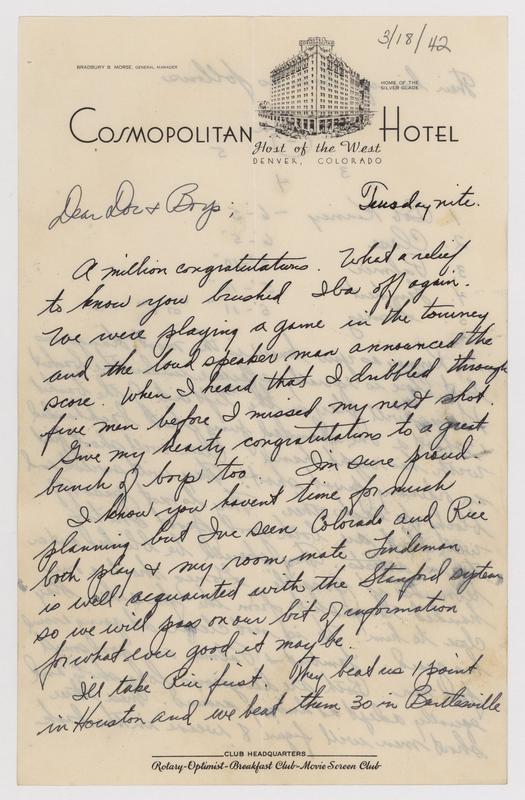 3/18/42
BRADBURY B. MORSE, GENERAL MANAGER
HOME OF THE
SILVER GLADE
COSMOPOLITAN HOTEL
Host of the West
DENVER, COLORADO
Tuesday nite.
Dear Doc & Boys;
A million congratulations. What a relief
to know you brushed Iba off again.
We were playing a game in the tourney
and the loud speaker man announced the
score. When I heard that I dribbled through
five men before I missed my next shot.
Give my hearty congratulations to a great
bunch of boys too. I'm sure proud.
I know you havent time for much
planning but I've seen Colorado and Rice
both play & my room mate Lindeman
is well acquainted with the Stanford system
so we will pass on our bit of information
for what ever good it may be.
I'll take Rice first. They beat us 1 point
in Houston and we beat them 30 in Bartlesville
CLUB HEADQUARTERS
Rotary-Optimist-Breakfast Club-Movie Screen Club